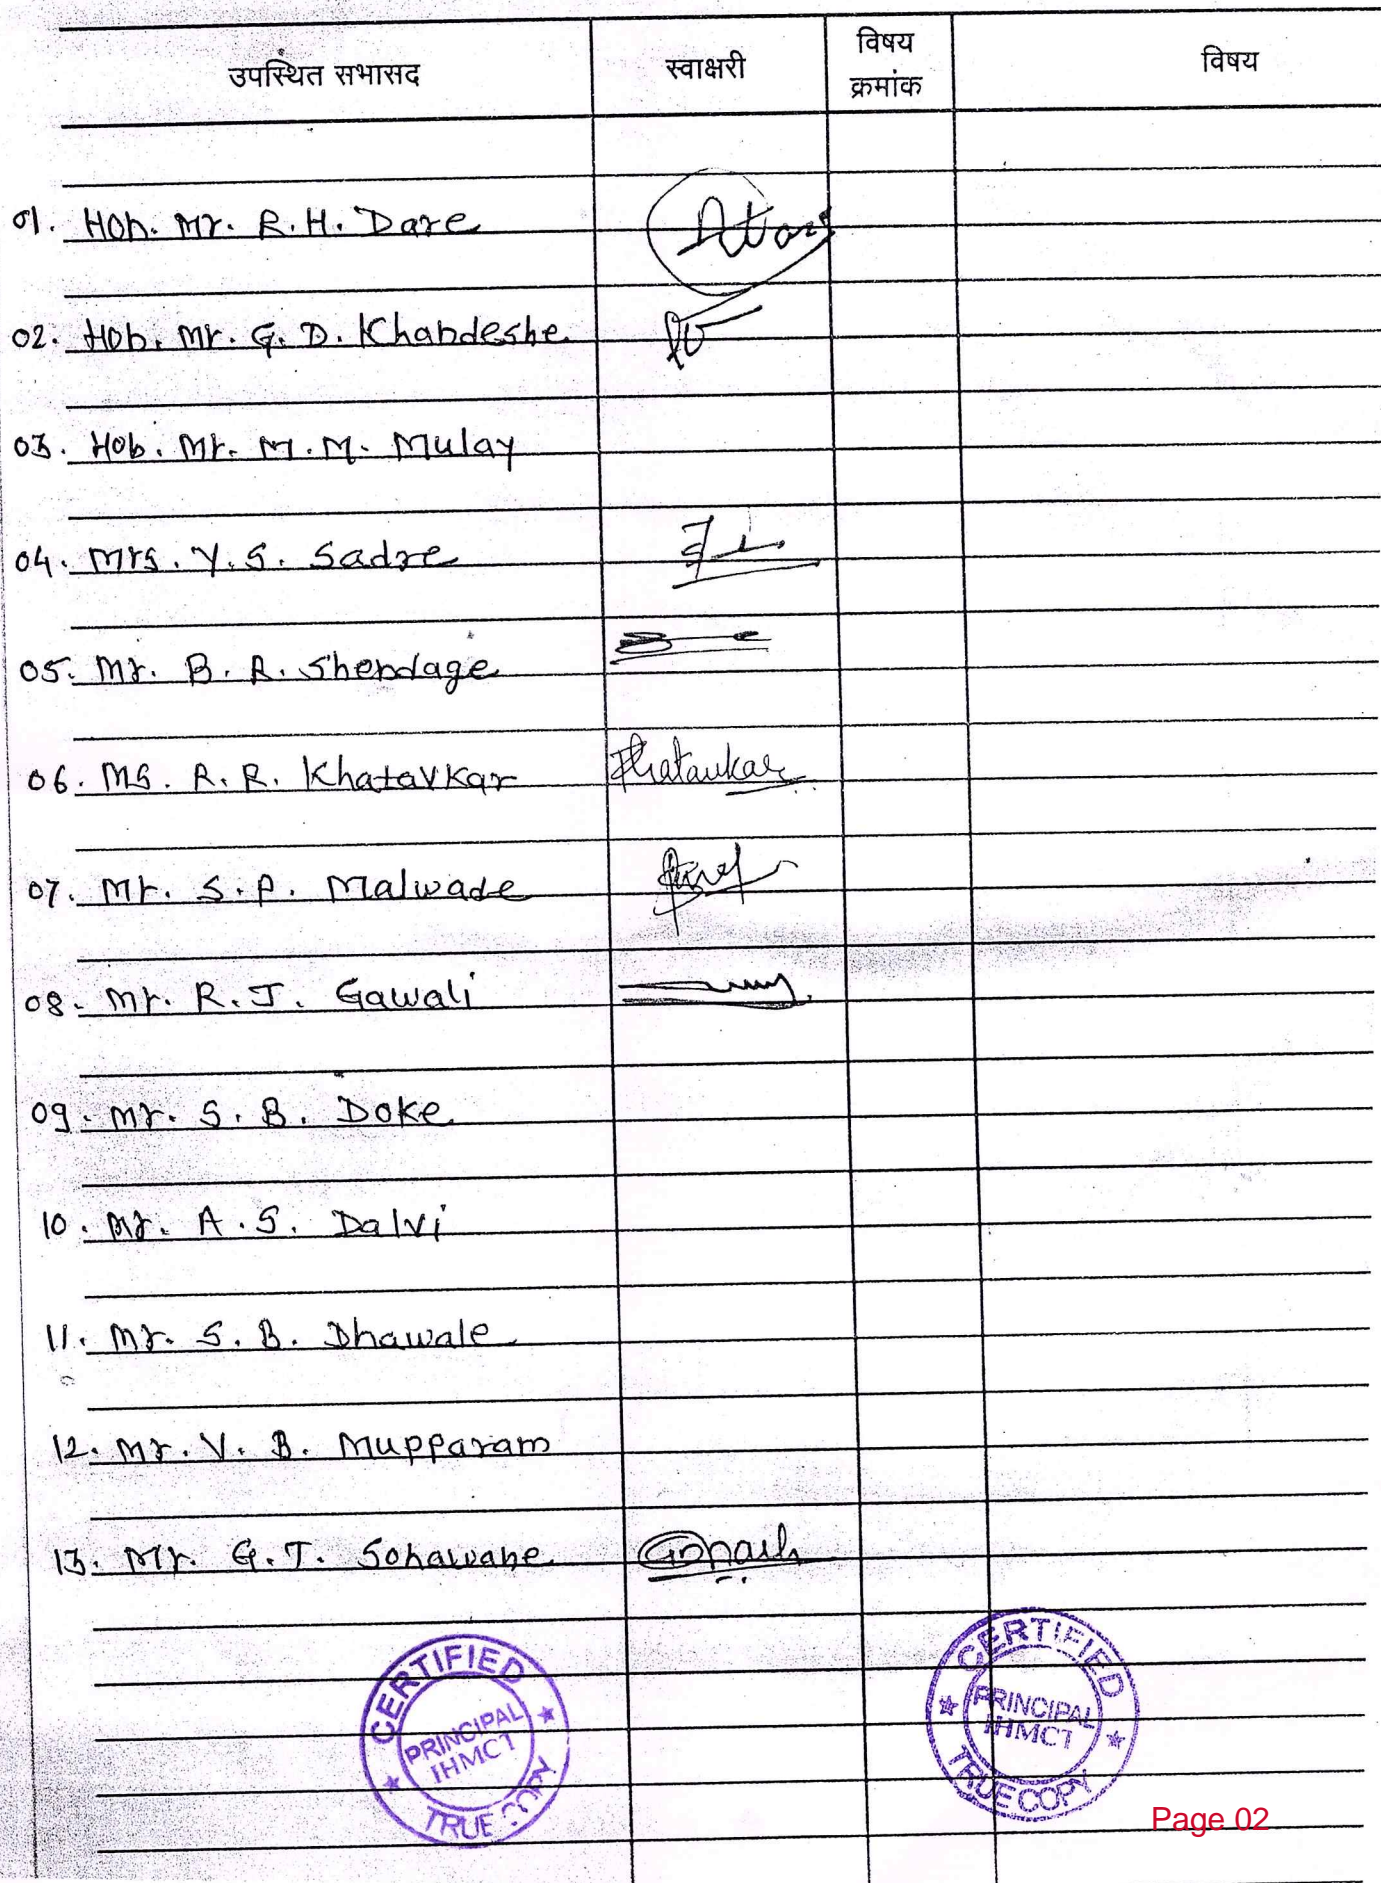 उपस्थित सभासद स्वाक्षरी विषय क्रमांक विषय
01. Hon. Mr. R.H. Dare
02. Hon. Mr. G. D. Khandeshe
03. Hon. Mr. M. M. Mulay
04. Mrs. Y. S. Sadre
05. Mr. B. R. Shendage
06. MS. R. R. Khatavkar Khatavkar
07. Mr. S. P. Malwade
08. Mr. R. J. Gawali
09. Mr. S. B. Doke
10. Mr. A. S. Dalvi
11. Mr. S. B. Dhawale
12. Mr. V. B. Mupparam
13. Mr. G. T. Sonawane
CERTIFIED
PRINCIPAL
IHMCT
TRUE COPY
CERTIFIED
PRINCIPAL
IHMCT
TRUE COPY
Page 02